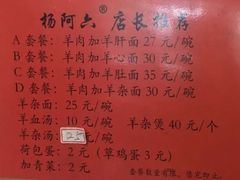 杨阿六® 店长推荐
A 套餐：羊肉加羊肝面 27 元/碗
B 套餐：羊肉加羊心面 30 元/碗
C 套餐：羊肉加羊肚面 35 元/碗
D 套餐：羊肉加羊杂面 30 元/碗
羊杂面：25 元/碗
羊血汤：10 元/碗 羊杂煲 40 元/个
羊杂汤：25元/碗
荷包蛋：2 元（草鸡蛋 3 元）
加青菜：2 元
套餐数量有限，售完即止